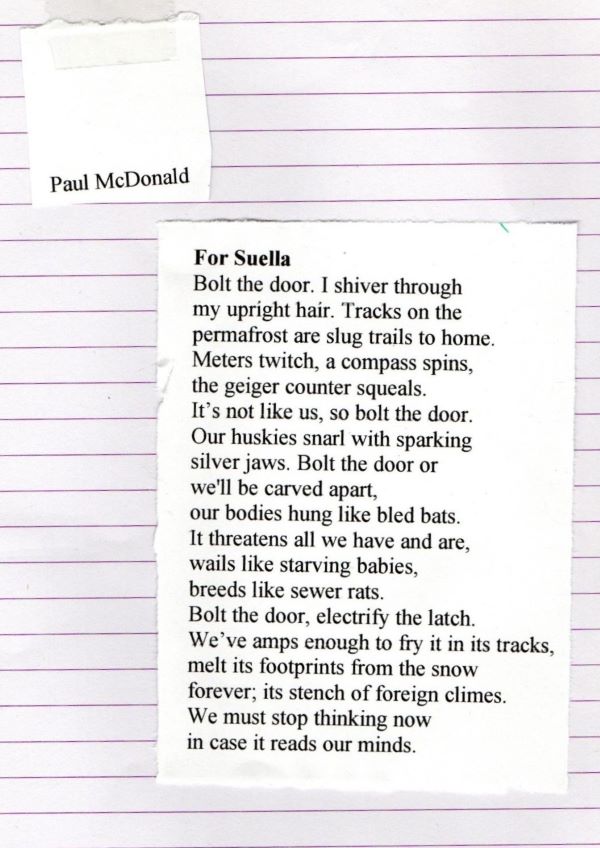 Paul McDonald
For Suella
Bolt the door. I shiver through
my upright hair. Tracks on the
permafrost are slug trails to home.
Meters twitch, a compass spins,
the geiger counter squeals.
It’s not like us, so bolt the door.
Our huskies snarl with sparking
silver jaws. Bolt the door or
we'll be carved apart,
our bodies hung like bled bats.
It threatens all we have and are,
wails like starving babies,
breeds like sewer rats.
Bolt the door, electrify the latch.
We’ve amps enough to fry it in its tracks,
melt its footprints from the snow
forever; its stench of foreign climes.
We must stop thinking now
in case it reads our minds.